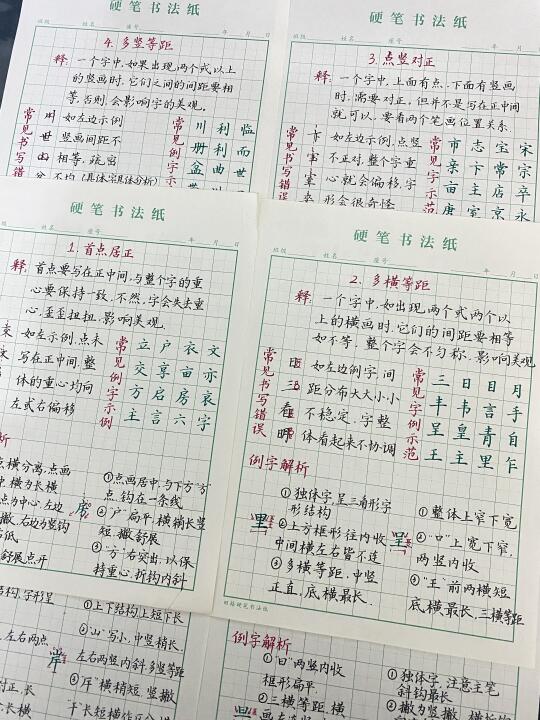 硬笔书法纸
班级 姓名 座号 年 月 日
4. 多竖等距
释: 一个字中,如果出现两个或以上
的竖画时,它们之间的间距要相
等,否则,会影响字的美观.
常见书写错误
如左边示例
竖画间距不
相等,疏密
不均(具体字具体分析)
常见例字示
川 利 临
册 利 而
盆 曲 世
硬笔书法纸
姓名 座号 年 月 日
3. 点竖对正
释: 一个字中,上面有点,下面有竖画
时,需要对正,但并不是写在正中间
就可以,要看两个笔画位置关系.
常见书写错误
如左边示例,点竖
不正对,整个字重
心就会偏移,字
形会很奇怪
常见例字示范
市 志 宝 宋
亲 卞 常 宗
亩 主 店 卒
唐 室 京 永
硬笔书法纸
班级 姓名 座号 年 月 日
1. 首点居正
释: 首点要写在正中间,与整个字的重
心要保持一致,不然,字会失去重
心,歪歪扭扭,影响美观.
如左示例,点未
写在正中间,整
体的重心均向
左或右偏移
常见例字示例
立 户 衣 文
交 享 亩 亦
方 启 房 哀
主 言 六 字
析
点横分离,点画
横为长横
点为中心,左边
撇,右边为竖钩
舒展点开
①点画居中,与下方“方”
点,钩在一条线
②“户”扁平,横稍长竖
短,撇舒展
③“方”右突出,以保
持重心,折钩内斜
硬笔书法纸
班级 姓名 座号 年 月 日
2. 多横等距
释: 一个字中,如出现两个或两个以
上的横画时,它们的间距要相等
如不等,整个字会不匀称,影响美观
常见书写错误
如左边例字,间
距分布大大小小
不稳定,字整
体看起来不协调
常见例字示范
三 日 目 月
丰 韦 言 手
呈 皇 青 自
王 主 里 乍
例字解析
里
①独体字,呈三角形字
形结构
②上方框形,往内收
中间横左右皆不连
③多横等距,中竖
正直,底横最长.
呈
①整体上窄下宽
②“口”上宽下窄,
两竖内收
③“王”前两横短
底横最长,三横等距
田格硬笔书法纸
构,字形呈
左右两点
对正,长
①上下结构,上短下长
②“山”写小,中竖稍长,
左右两竖内斜,多竖等距
③“厈”横稍短,竖撇
例字解析
①“曰”两竖内收
框形扁平,
②三横等距,横
①独体字,注意主笔
斜钩最长
②撇为竖撇,横